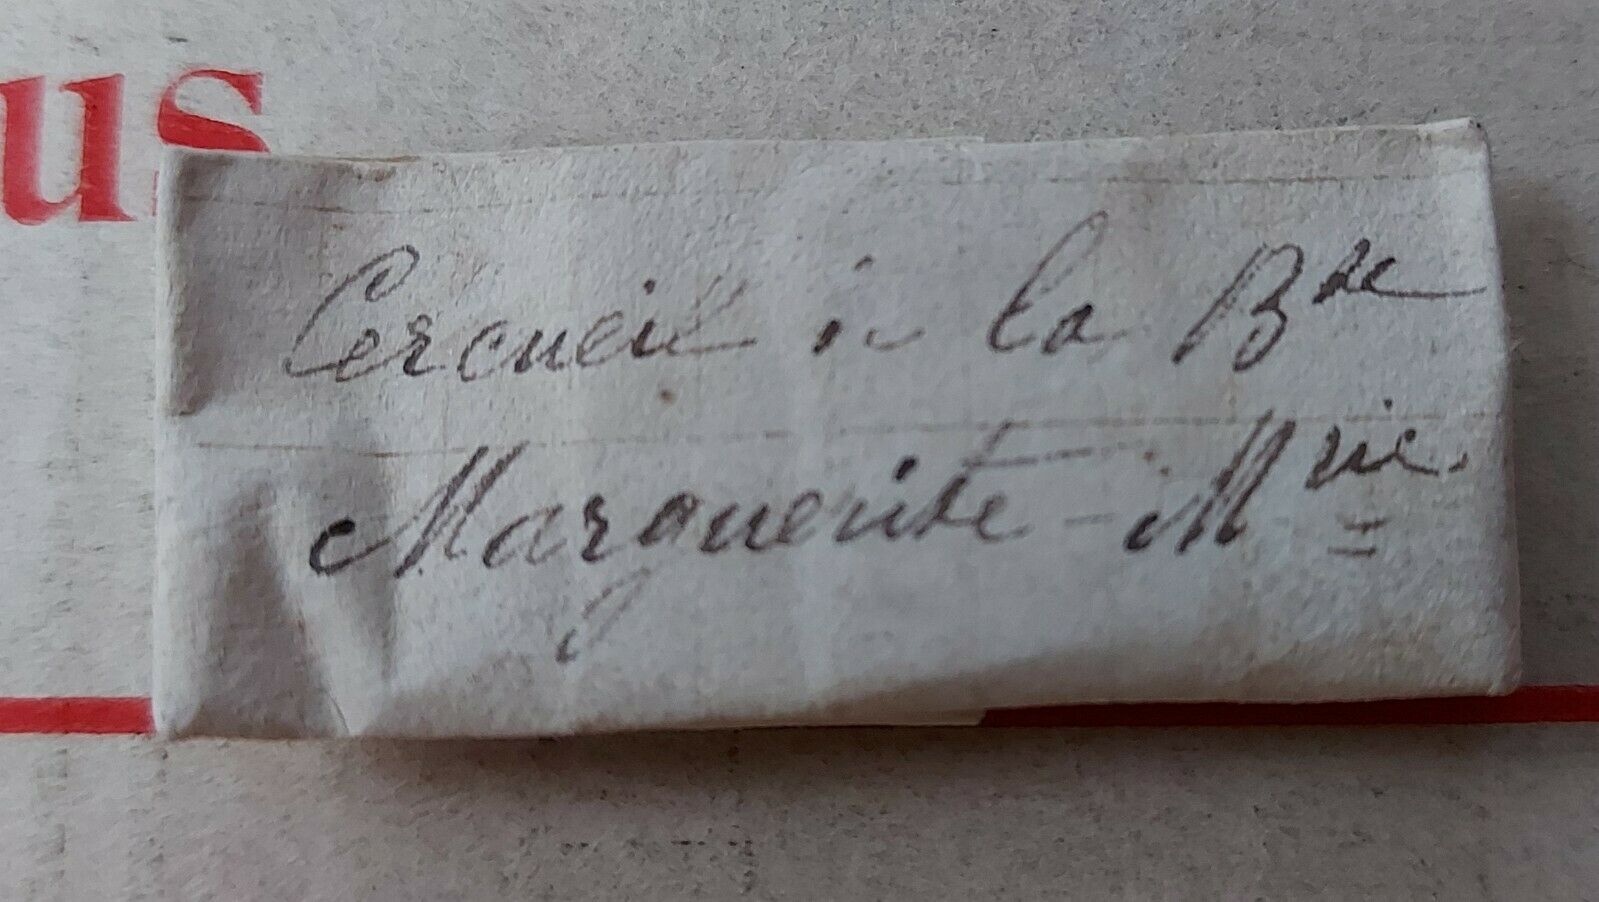 us
Cercueil à la Bse
Marguerite-Mrie.